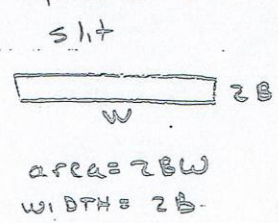 slit
2B
W
area = 2BW
WIDTH = 2B.